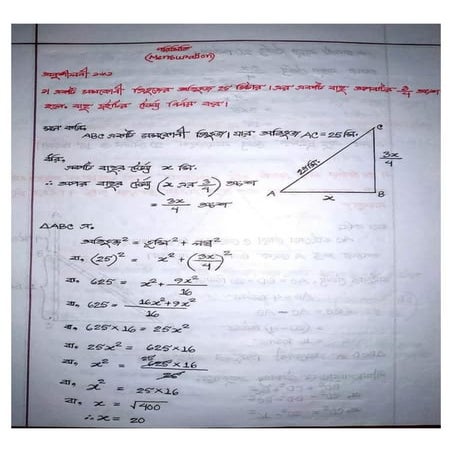 পরিমিতি
(Mensuration)
অনুশীলনী
১। একটি সমকোণী ত্রিভুজের অতিভুজ 25 মিটার। এর একটি বাহু অপরটির 3/4 অংশ
হলে, বাহু দুইটির দৈর্ঘ্য নির্ণয় কর।
মনে করি,
ABC একটি সমকোণী ত্রিভুজ। যার অতিভুজ AC = 25 মি.
ধরি,
একটি বাহুর দৈর্ঘ্য x মি.
∴ অপর বাহুর দৈর্ঘ্য (x এর 3/4) অংশ
= 3x/4 অংশ
C
25 মি.
3x/4
A
x
B
△ABC এ,
অতিভুজ² = ভূমি² + লম্ব²
বা, (25)² = x² + (3x/4)²
বা, 625 = x² + 9x²/16
বা, 625 = 16x²+9x²/16
বা, 625×16 = 25x²
বা, 25x² = 625×16
বা, x² = 625×16/25
25
বা, x² = 25×16
বা, x = √400
∴ x = 20